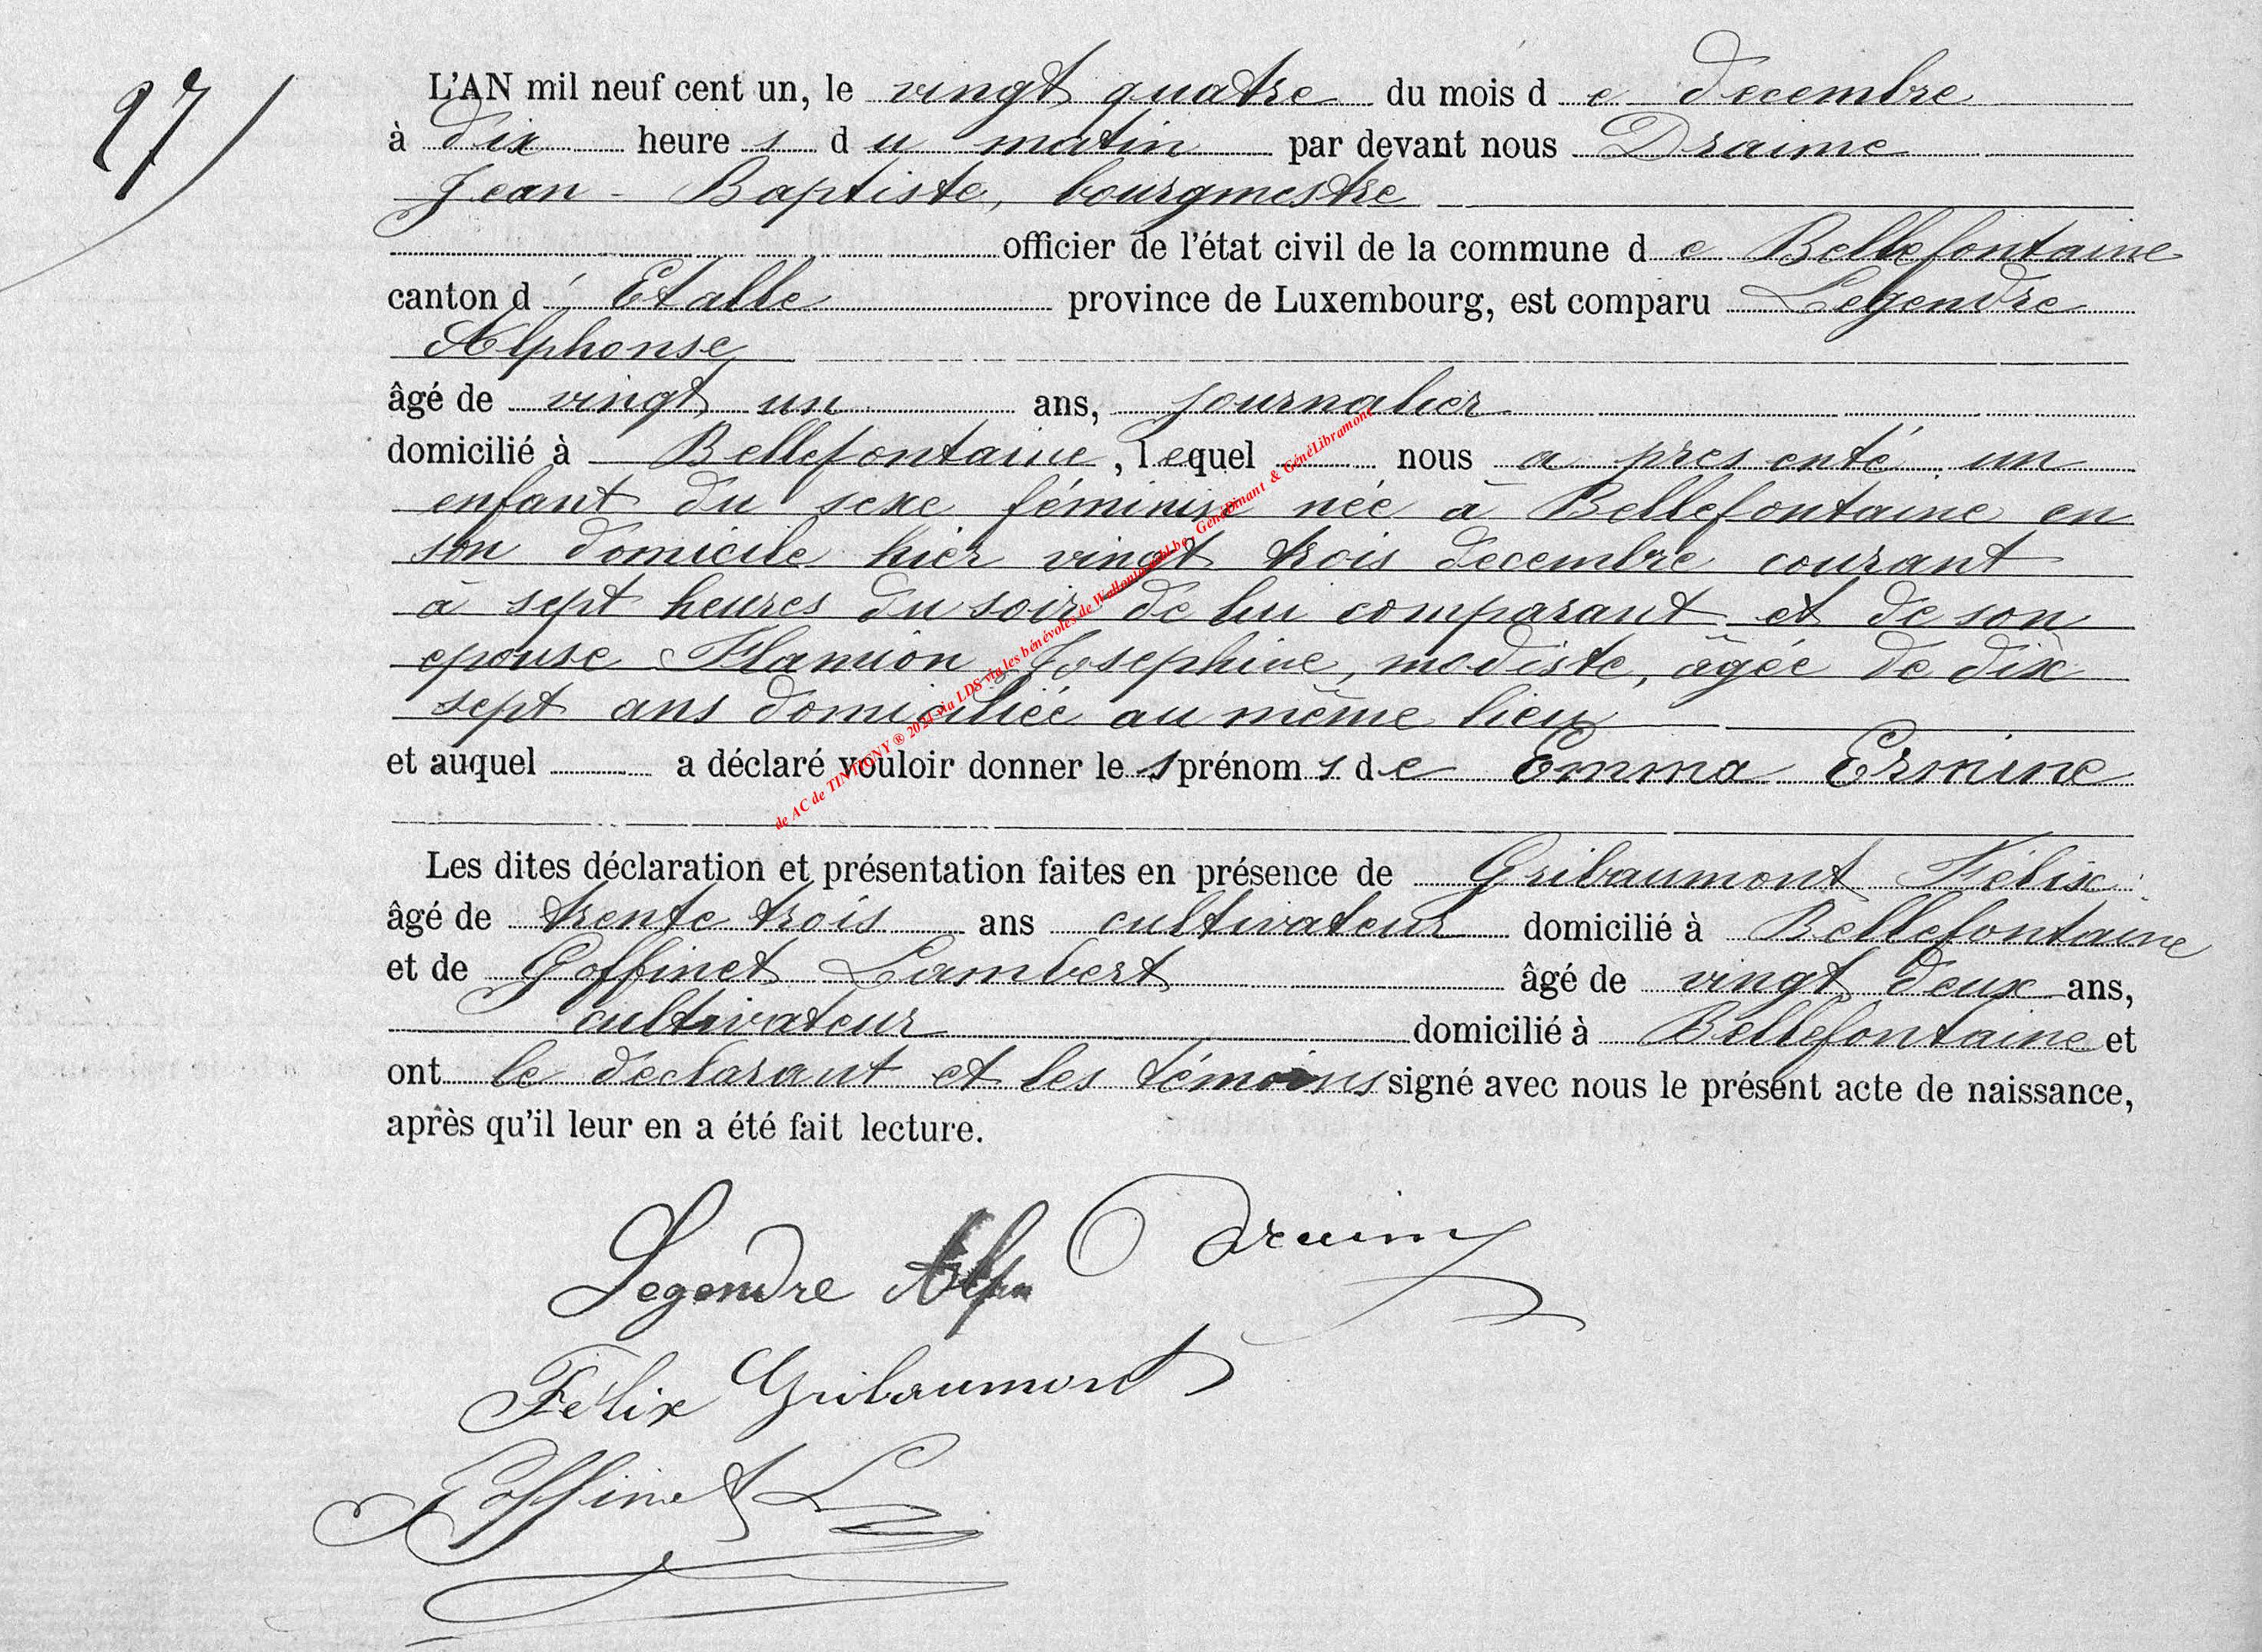 27
L'AN mil neuf cent un, le vingt quatre du mois de decembre
à dix heures du matin par devant nous Draime
Jean - Baptiste, bourgmestre
officier de l'état civil de la commune de Bellefontaine
canton d'Etalle province de Luxembourg, est comparu Legendre
Alphonse
âgé de vingt un ans, journalier
domicilié à Bellefontaine, lequel nous a presenté un
enfant du sexe féminin née à Bellefontaine en
son domicile hier vingt trois decembre courant
à sept heures du soir de lui comparant et de son
epouse Flamion Josephine, modiste, âgée de dix
sept ans domiciliée au même lieu
et auquel a déclaré vouloir donner les prénoms de Emma Ermine
Les dites déclaration et présentation faites en présence de Gribaumont Félix
âgé de trente trois ans cultivateur domicilié à Bellefontaine
et de Goffinet Lambert âgé de vingt deux ans,
cultivateur domicilié à Bellefontaine et
ont le declarant et les témoins signé avec nous le présent acte de naissance,
après qu'il leur en a été fait lecture.
Legendre Alph Draime
Félix Gribaumont
Goffinet L
de AC de TINTIGNY ® 2024 via LDS via les bénévoles de & GénéLibramont